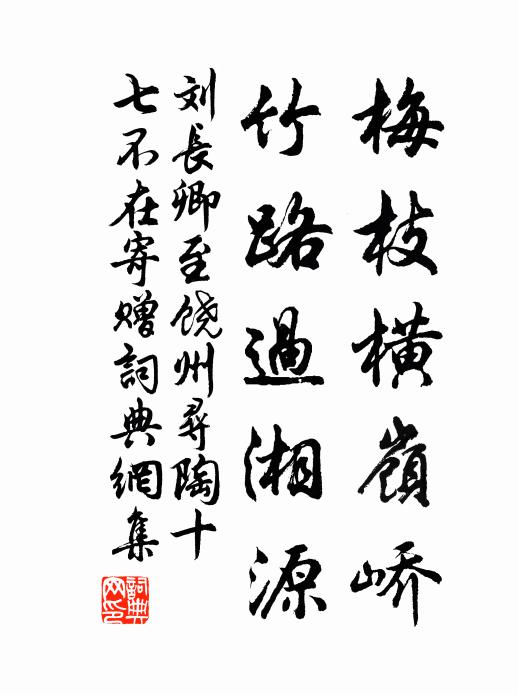 梅枝橫嶺嶠
竹路過湘源
刘長卿至饶州尋陶十
七不在寄贈詞典網集
詞典
网印